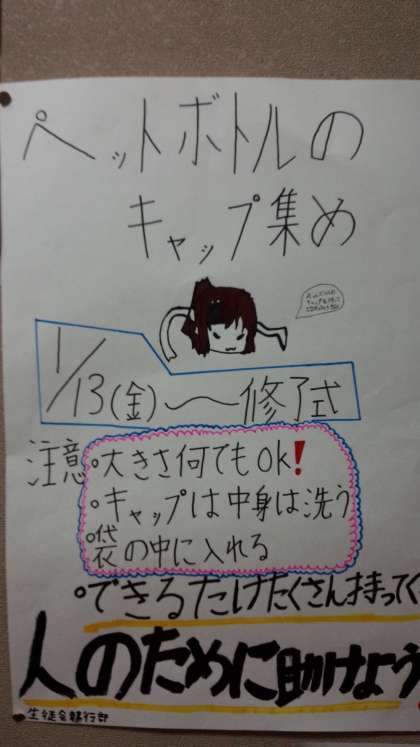 ペットボトルの
キャップ集め
1/13(金)〜修了式
注意
・大きさ何でもOK!
・キャップは中身は洗う
・袋の中に入れる
・できるだけたくさん持ってく
人のために助けよう!
生徒会執行部